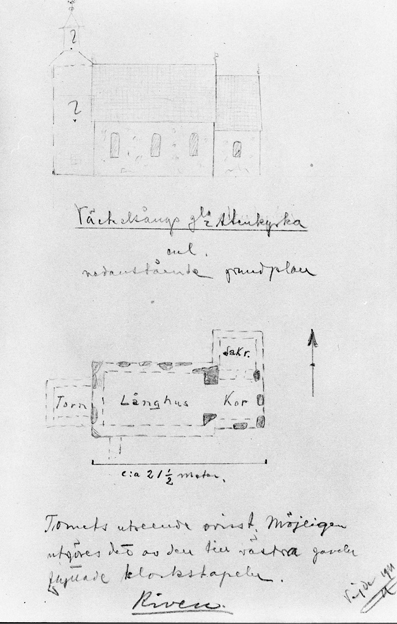 ?
?
Väckelsångs gla Stenkyrka
enl.
nedanstående grundplan
Sakr.
Torn
Långhus
Kor
c:a 21 1/2 meter.
Tornets utseende ovisst. Möjligen
utgöres det av den till västra gaveln
klockstapeln.
Riven.